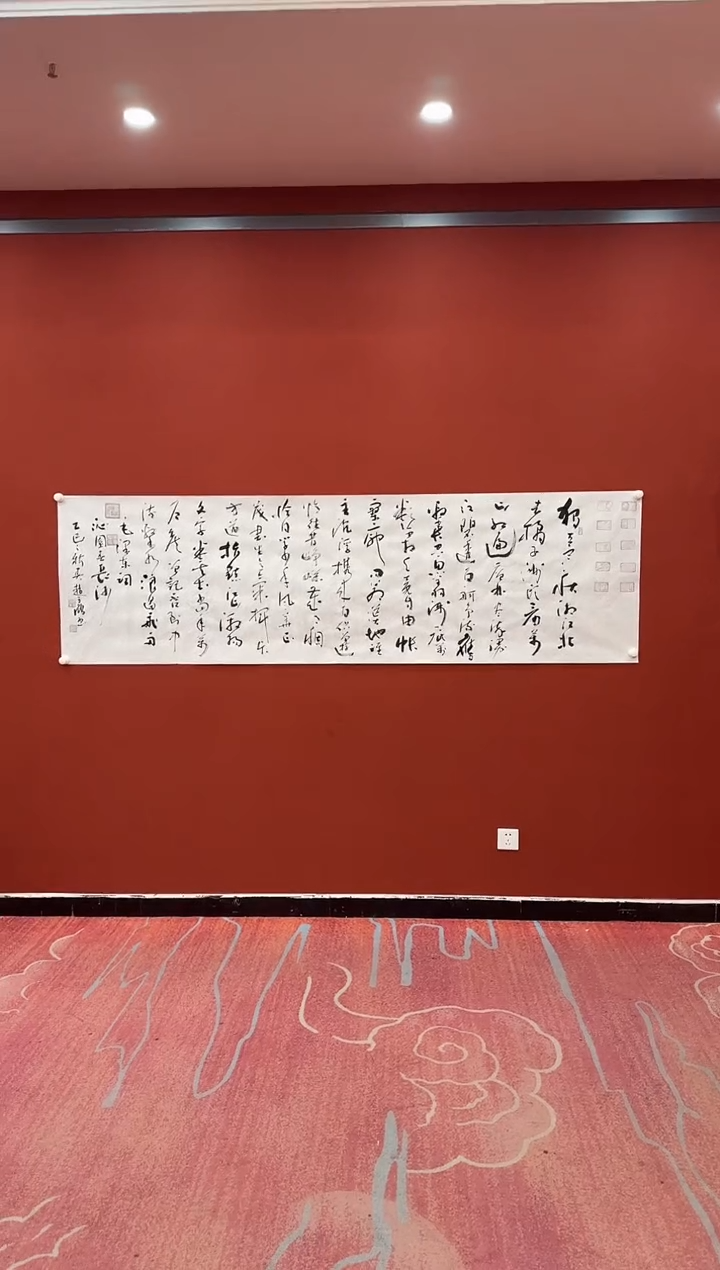 独立寒秋湘江北
去橘子洲头看万
山红遍层林尽染漫
江碧透百舸争流鹰
击长空鱼翔浅底万
类霜天竞自由怅
寥廓问苍茫大地谁
主沉浮携来百侣曾游
忆往昔峥嵘岁月稠
恰同学少年风华正
茂书生意气挥斥
方遒指点江山激扬
文字粪土当年万
户侯曾记否到中
流击水浪遏飞舟
毛泽东词
沁园春长沙
乙巳之秋